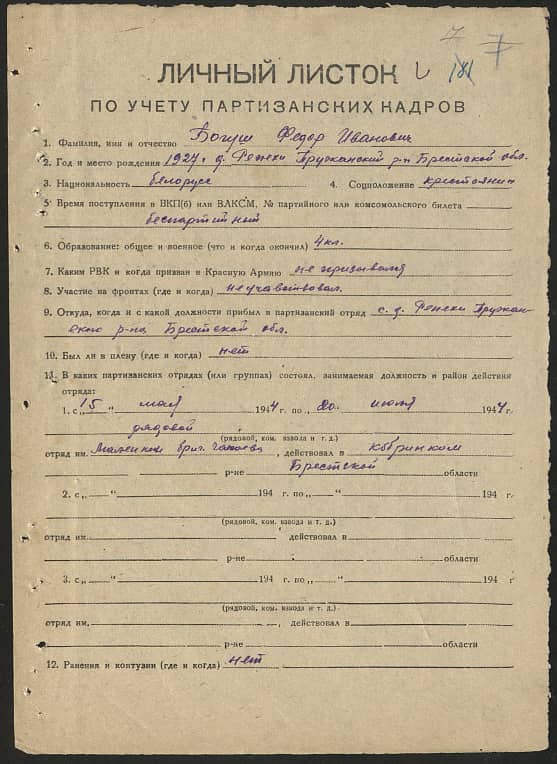 7 7
181
ЛИЧНЫЙ ЛИСТОК
ПО УЧЕТУ ПАРТИЗАНСКИХ КАДРОВ
1. Фамилия, имя и отчество Богуш Федор Иванович
2. Год и место рождения 1927 г. д. Ревеки Пружанский р-н Брестской обл.
3. Национальность белорус 4. Соцположение крестьянин
5. Время поступления в ВКП(б) или ВЛКСМ, № партийного или комсомольского билета
беспартийный
6. Образование: общее и военное (что и когда окончил) 4 кл.
7. Каким РВК и когда призван в Красную Армию не призывался
8. Участие на фронтах (где и когда) не участвовал.
9. Откуда, когда и с какой должности прибыл в партизанский отряд с. д. Ревеки Пружан-
ского р-на Брестской обл.
10. Был ли в плену (где и когда) нет
11. В каких партизанских отрядах (или группах) состоял, занимаемая должность и район действия
отряда:
1. с „15" мая 1944 г. по „20" июля 1944 г.
рядовой
(рядовой, ком. взвода и т. д.)
отряд им. бриг. Чапаева, действовал в Кобринском
р-не Брестской области
2. с „ " 194 г. по „ " 194 г.
(рядовой, ком. взвода и т. д.)
отряд им. , действовал в
р-не области
3. с „ " 194 г. по „ " 194 г.
(рядовой, ком. взвода и т. д.)
отряд им. , действовал в
р-не области
12. Ранения и контузии (где и когда) нет